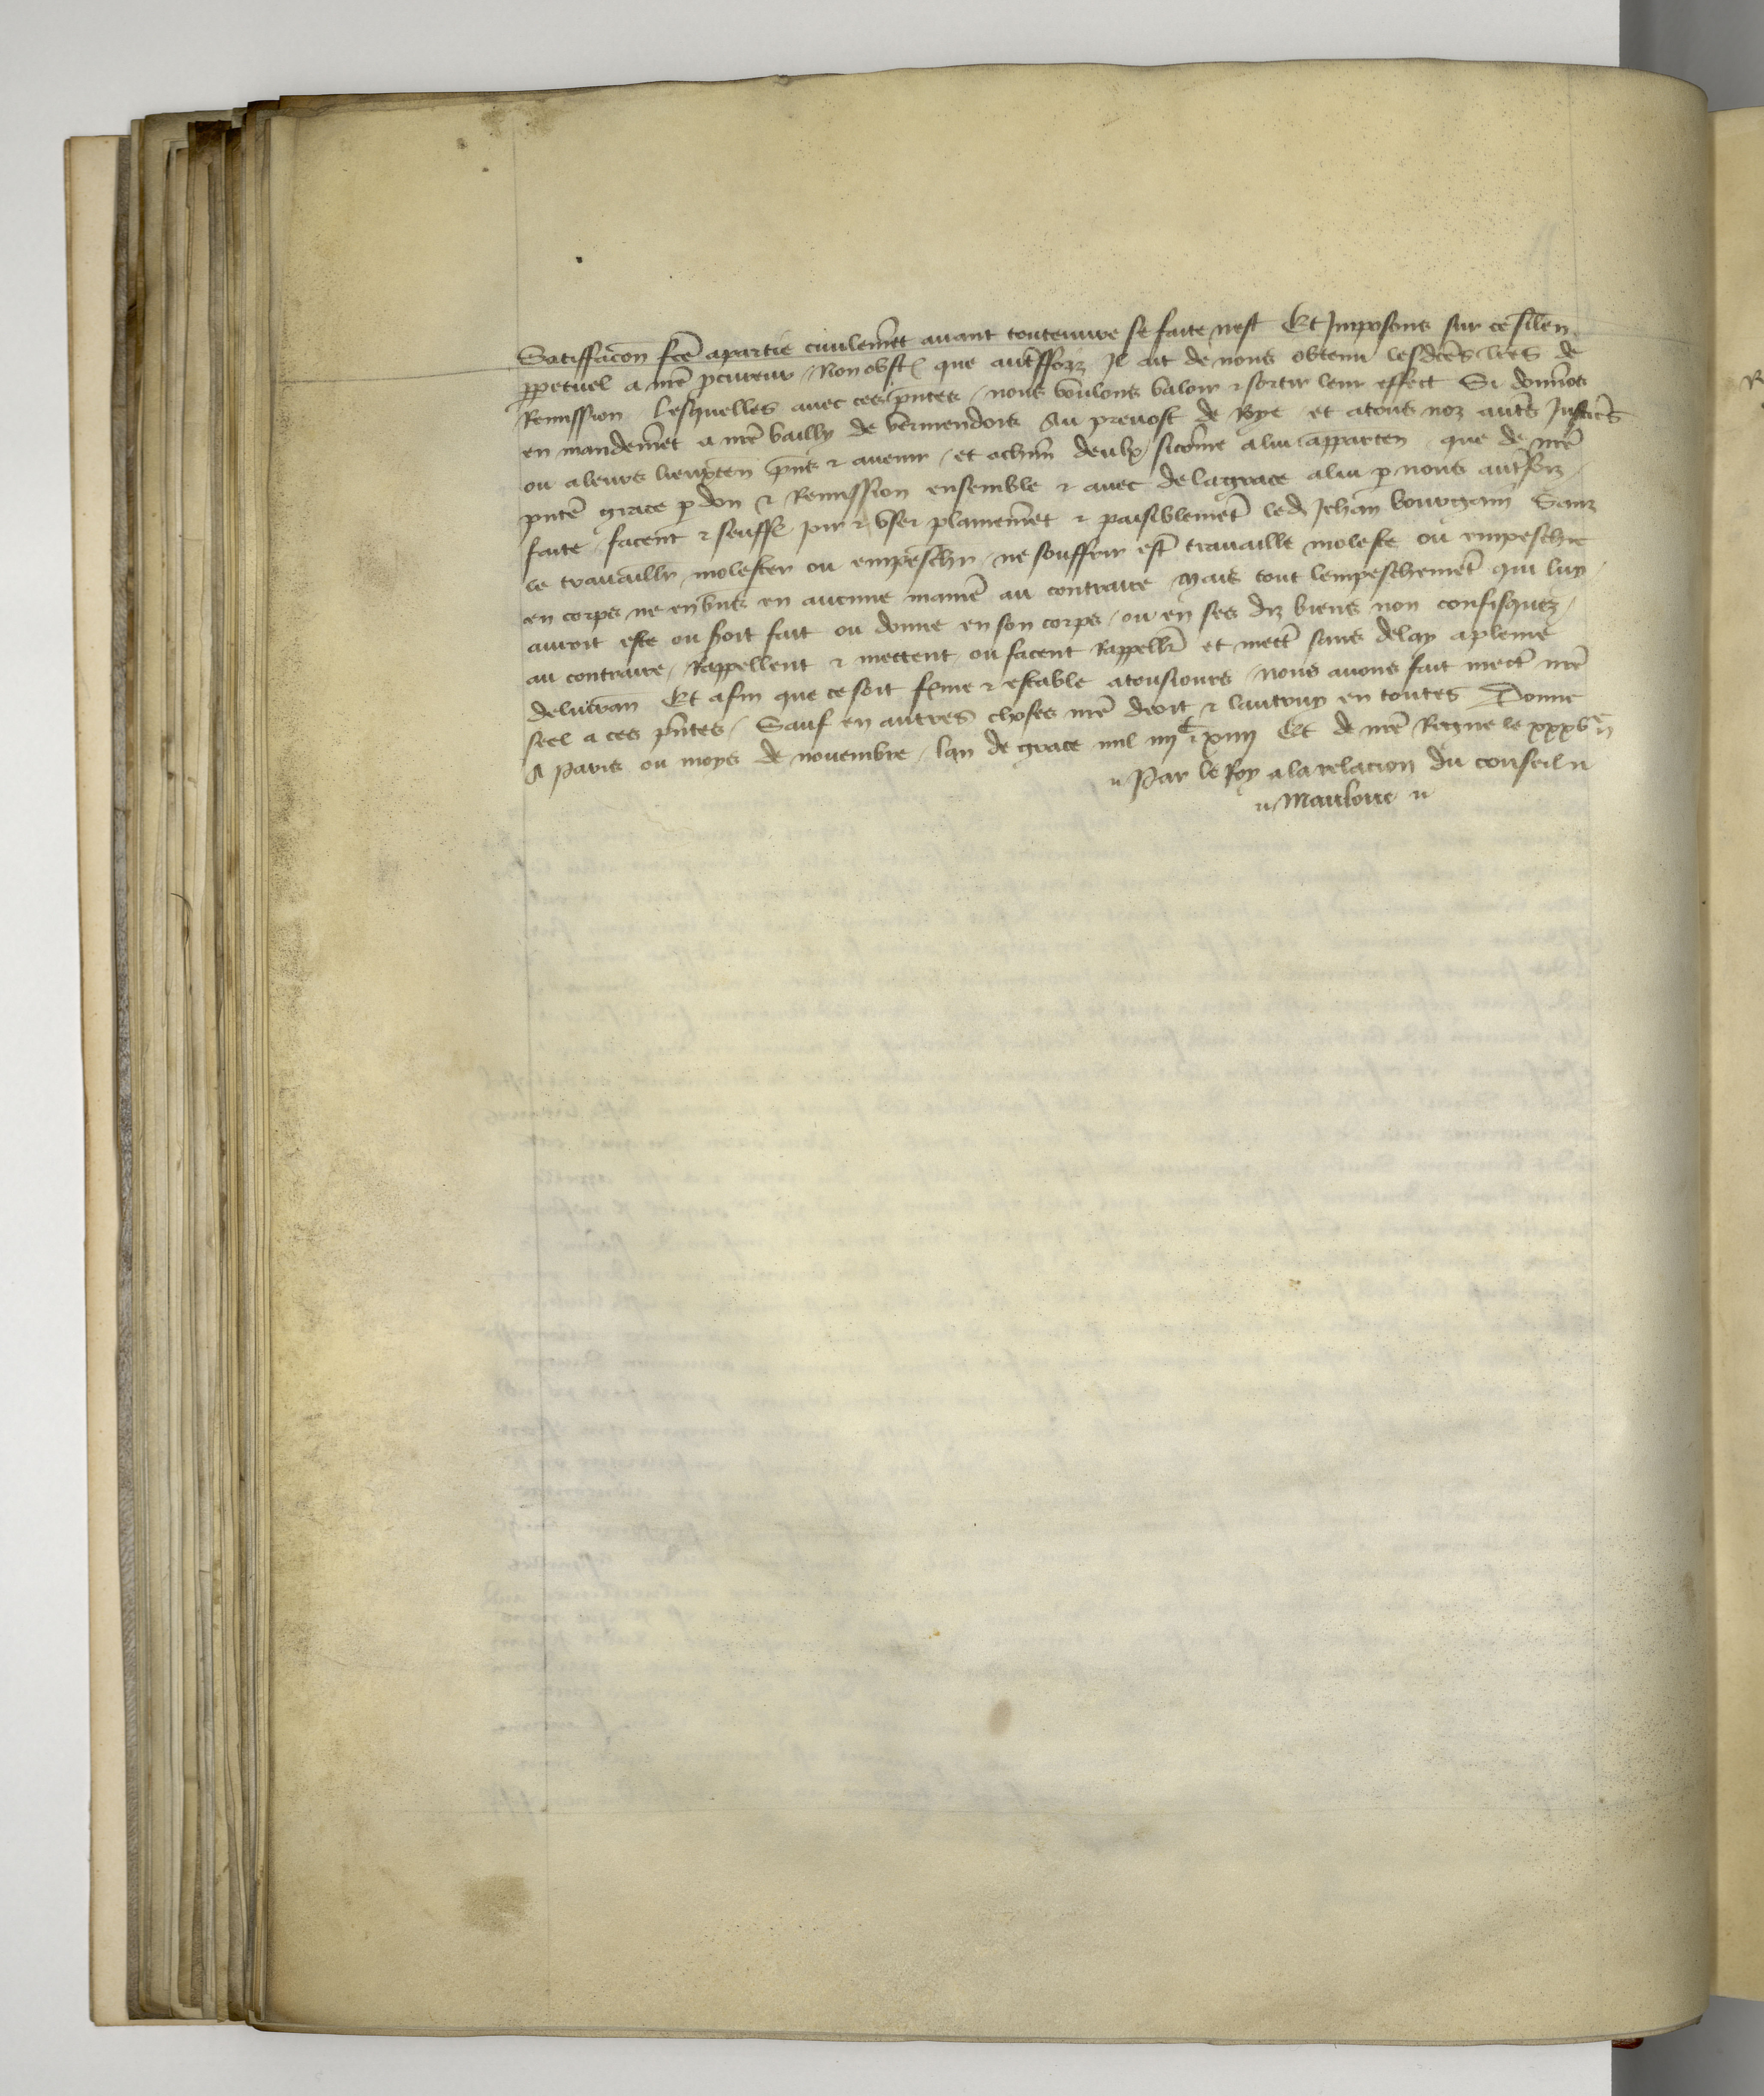 Satiffacōn fcē apartie ciuilemēt auant toutenure se faite nest Et Imposons sur ce silen
ppetuel a nrē pcureur / Non obst que autreffoiz Il ait de nous obtenu lesdcēs lrēs de
Remission / Lesquelles auec ces pn̄tes / nous voulons valoir ⁊ sortir leur effect Si donnōs
en mandemēt a nrē bailly de vermendois Au preuost de Roye et atous noz autēs Justicēs
ou aleurs lieuxten pn̄s ⁊ auenir / et achūn deulx / sicōme alui apparten que de nrē
pn̄te grace pdon ⁊ Remission ensemble ⁊ auec de lagrace alui p nous autreffoiz
faite / facent ⁊ seuffr joir ⁊ vser plainemēt ⁊ paisiblemēt led Jehan bourgain Sanz
le trauaillr molester ou empeschr / ne souffrir estr̄ trauaillé moleste ou empeschie
en corps ne en biens en aucune manie͞ au contraire Mais tout lempeschemēt qui luy
auroit este ou soit fait ou donne en son corps / ou en ses diz biens non confisquez /
au contraire / Rappellent ⁊ mettent ou facent Rappellr̄ et mectr̄ sans delay apleine
deliuran Et afin que ce soit fme ⁊ estable atousiours / Nous auons fait mectr̄ nrē
seel a ces pn̄tes / Sauf en autres choses nrē droit ⁊ lautruy en toutes Donne
A Paris ou moys de nouembre / lan de grace mil iiijc ⁊ xiiij Et de nrē Regne le xxxve
Par le Roy a la relacion du conseil
Mauloue